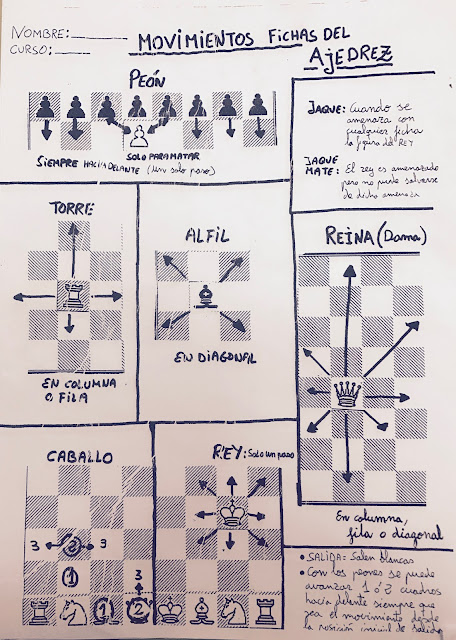 NOMBRE: ________
CURSO: ________
MOVIMIENTOS FICHAS DEL
AJEDREZ
PEÓN
SIEMPRE HACIA DELANTE (Un solo paso)
SOLO PARA MATAR
JAQUE: Cuando se
amenaza con
cualquier ficha
la figura del REY
JAQUE
MATE: El rey es amenazado
pero no puede salvarse
de dicha amenaza
TORRE
EN COLUMNA
O FILA
ALFIL
EN DIAGONAL
REINA (Dama)
En columna,
fila o diagonal
CABALLO
3 2 3
1
3
1 2
REY: Solo un paso
• SALIDA = Salen blancas
• Con los peones se puede
avanzar 1 ó 2 cuadros
hacia delante siempre que
sea el movimiento desde
la posición inicial de salida